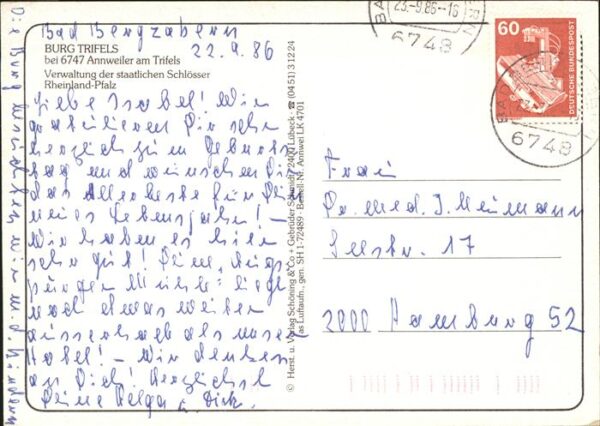 Bad Bergzabern
22.9.86
BURG TRIFELS
bei 6747 Annweiler am Trifels
Verwaltung der staatlichen Schlösser
Rheinland-Pfalz
Liebe Isabel! Wir
gratulieren Dir sehr
herzlich zum Geburts-
tag und wünschen Dir
das Allerbeste für Dein
neues Lebensjahr! –
Wir haben es hier
sehr gut! Deine
liegt
noch etwas weiter
ausserhalb als unser
Hotel! – Wir denken
an Dich! Herzlichst
Deine Helga u. Dirk.
Die Burg
© Herst. u. Verlag Schöning & Co + Gebrüder Schmidt, 2400 Lübeck · ☎ (04 51) 3 12 24
as Luftaufn., gen. SH 1-72489 · Bestell-Nr. Annwei LK 4701
23.-9.86-16
6748
60
DEUTSCHE BUNDESPOST
6748
Frau
Dr. med. I. Neumann
Seestr. 17
2000 Hamburg 52